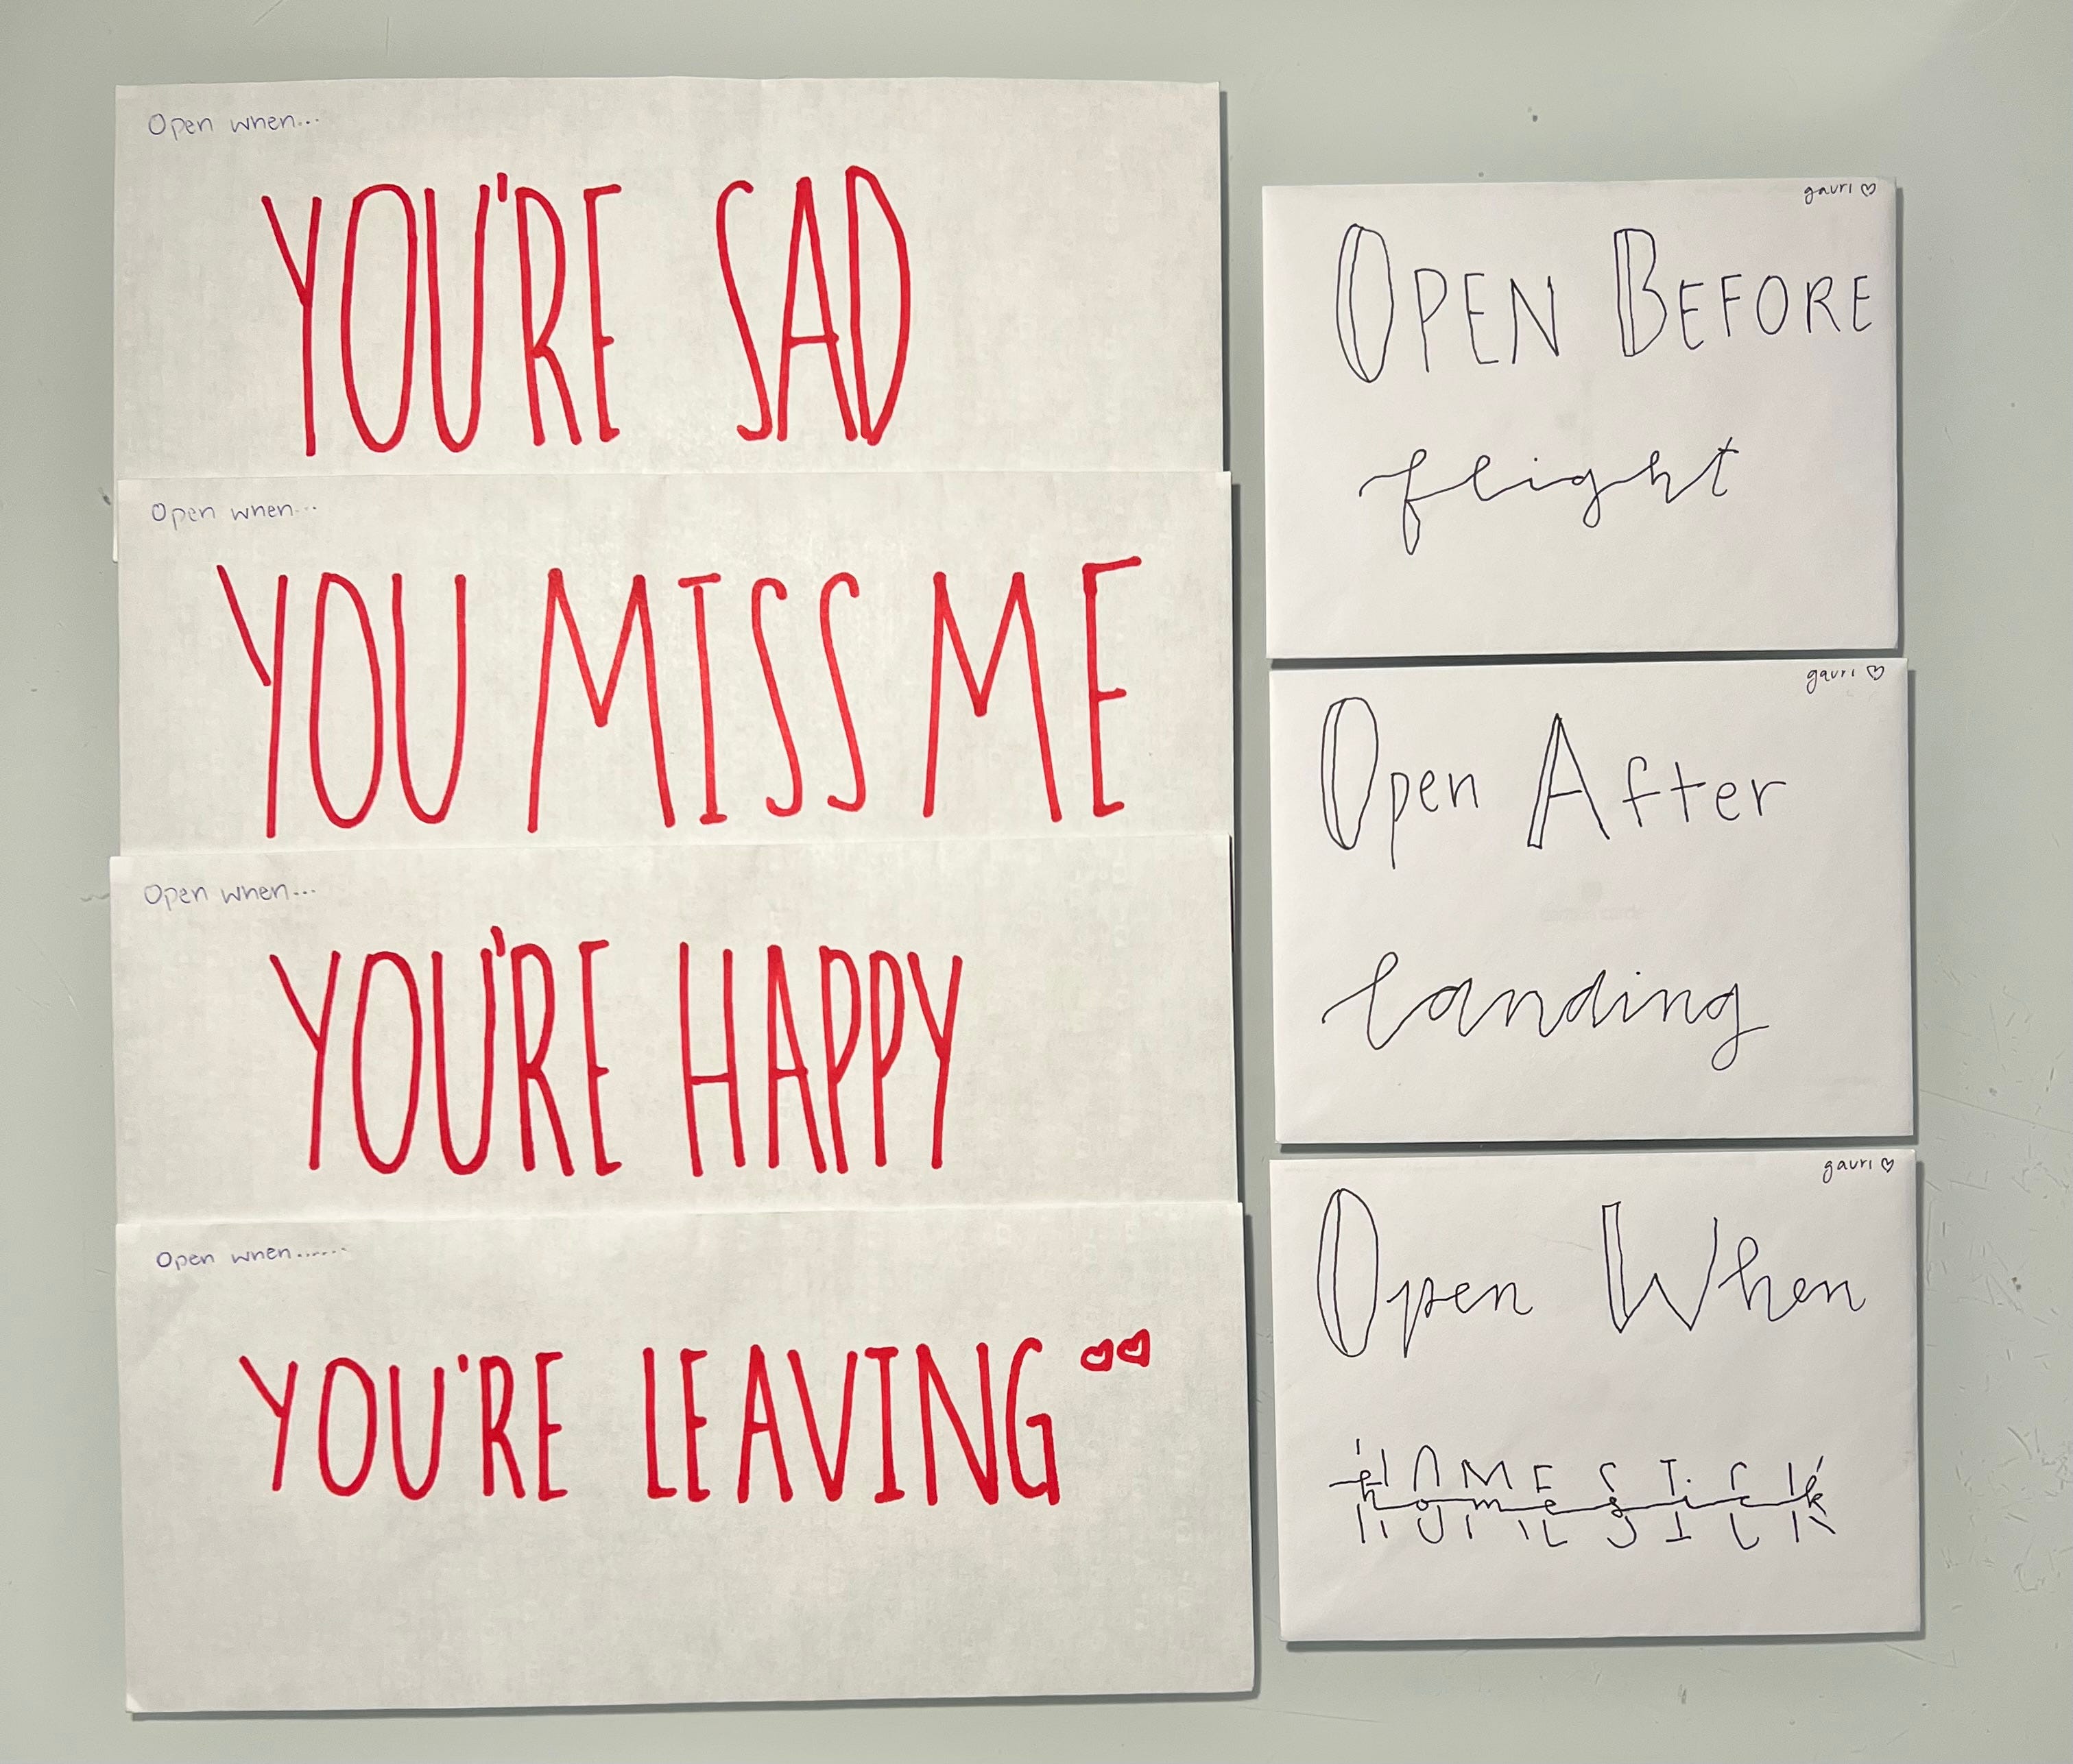 Open when...
YOU'RE SAD
Open when...
YOU MISS ME
Open when...
YOU'RE HAPPY
Open when......
YOU'RE LEAVING
gauri ♡
OPEN BEFORE
flight
gauri ♡
Open After
landing
gauri ♡
Open When
homesick